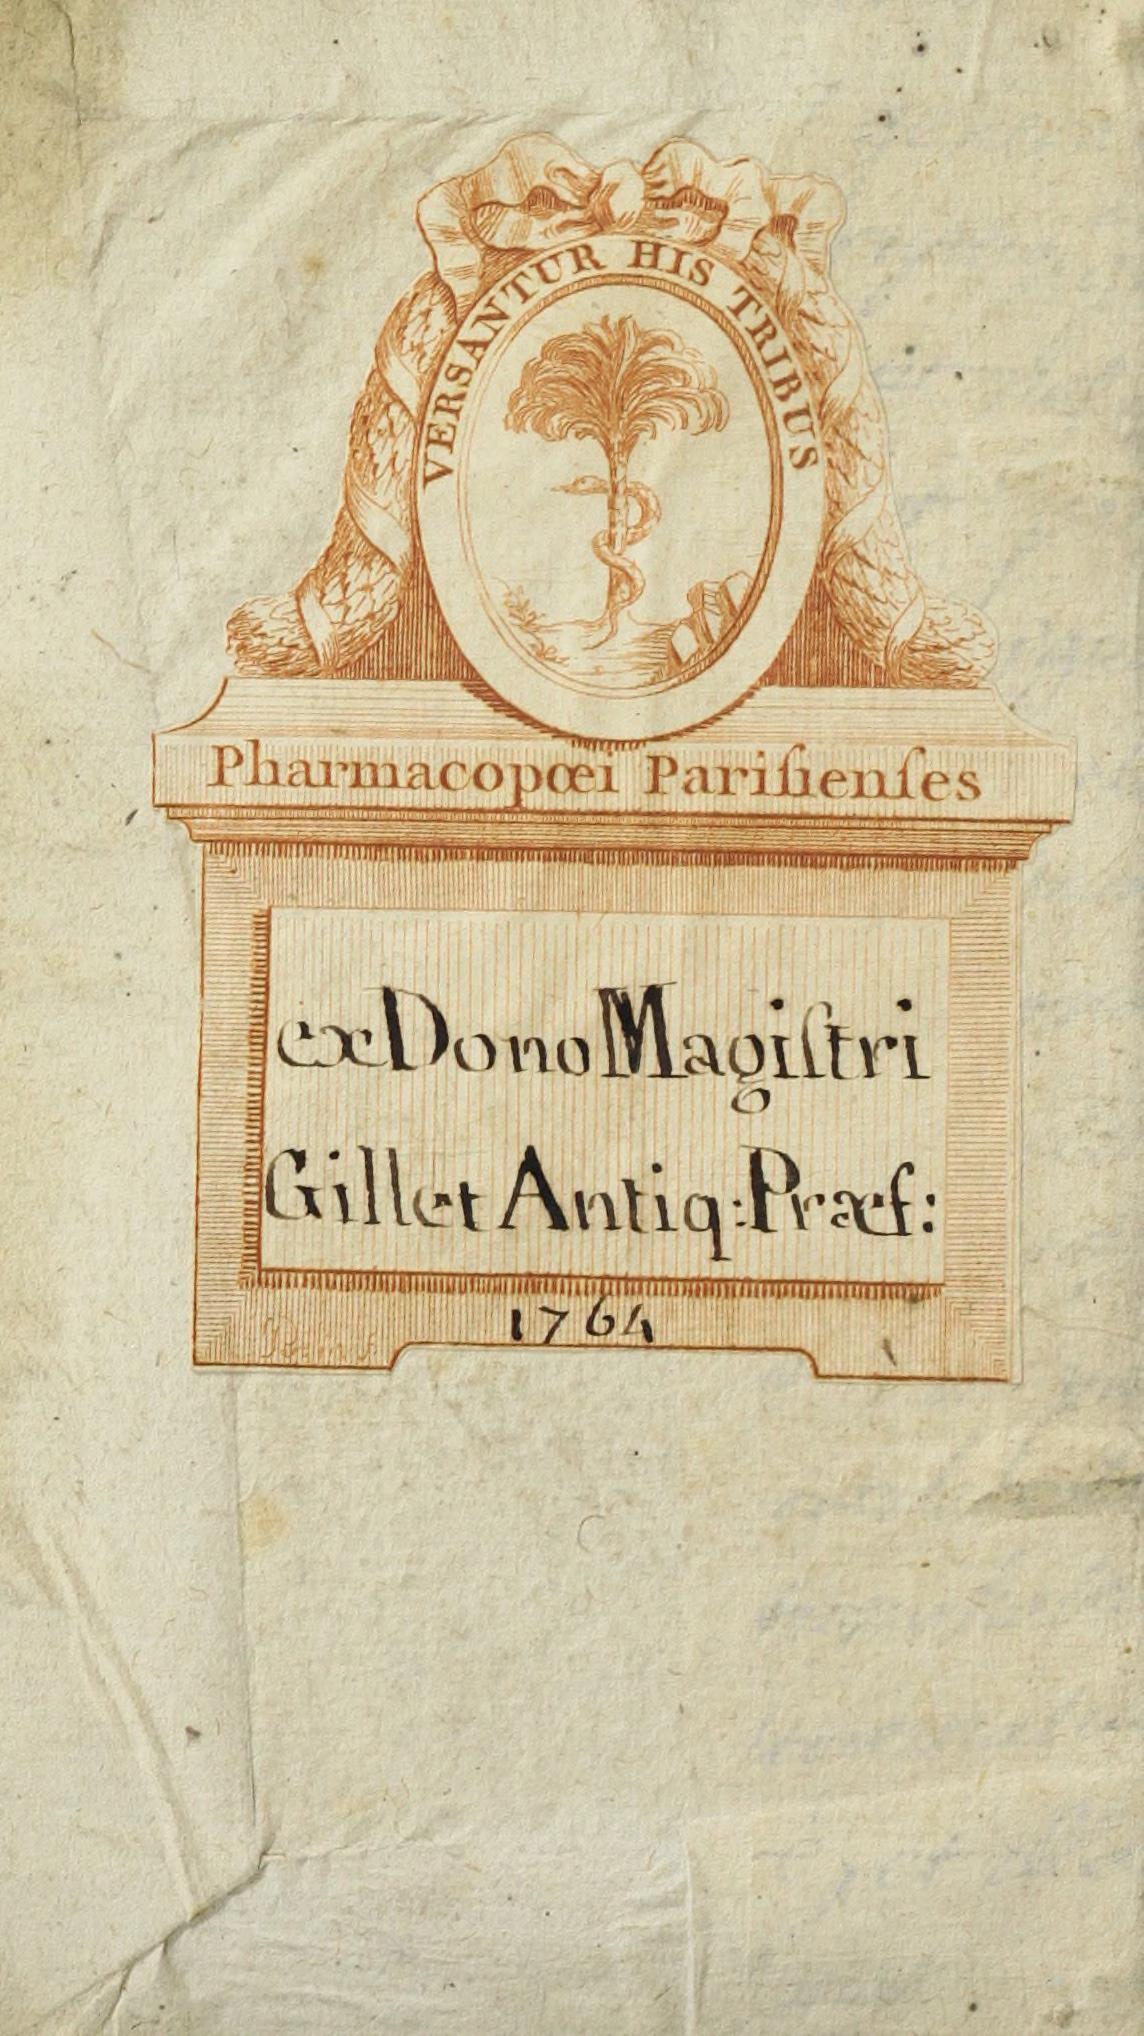 VERSANTUR HIS TRIBUS
Pharmacopœi Pariſienſes
ex Dono Magiſtri
Gillet Antiq: Præf:
1764